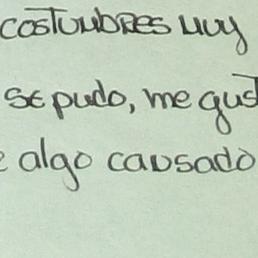 costumbres muy
se pudo, me gus
algo causado